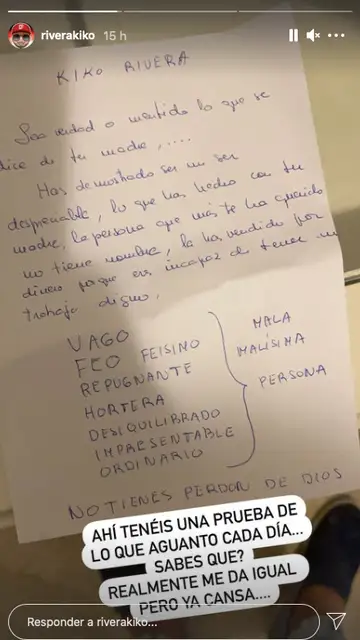 riverakiko 15 h
KIKO RIVERA
Sea verdad o mentida lo que se
dice de tu madre, .....
Has demostrado ser un ser
despreciable, lo que has hecho con tu
madre, la persona que más te ha querido
no tiene nombre, la has vendido por
dinero porque eres incapaz de tener un
trabajo digno,
VAGO
FEO FEISIMO
REPUGNANTE
HORTERA
DESIQUILIBRADO
IMPRESENTABLE
ORDINARIO
MALA
MALÍSIMA
PERSONA
NO TIENES PERDON DE DIOS
AHÍ TENÉIS UNA PRUEBA DE
LO QUE AGUANTO CADA DÍA...
SABES QUE?
REALMENTE ME DA IGUAL
PERO YA CANSA....
Responder a riverakiko...